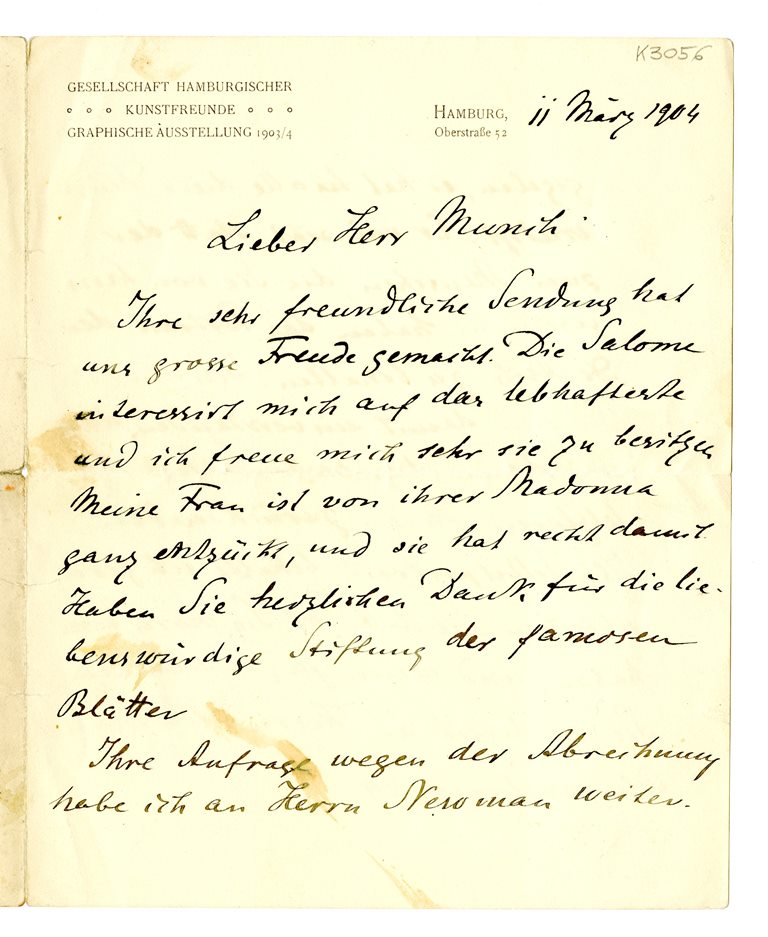 K3056
GESELLSCHAFT HAMBURGISCHER
∘ ∘ ∘ KUNSTFREUNDE ∘ ∘ ∘
GRAPHISCHE AUSSTELLUNG 1903/4
HAMBURG, 11 März 1904
Oberstraße 52
Lieber Herr Munch
Ihre sehr freundliche Sendung hat
uns grosse Freude gemacht. Die Salome
interessirt mich auf das lebhafteste
und ich freue mich sehr sie zu besitzen
Meine Frau ist von ihrer Madonna
ganz entzückt, und sie hat recht damit
Haben Sie herzlichen Dank für die lie-
benswürdige Stiftung der famosen
Blätter
Ihre Anfrage wegen der Abrechnung
habe ich an Herrn Newman weiter-